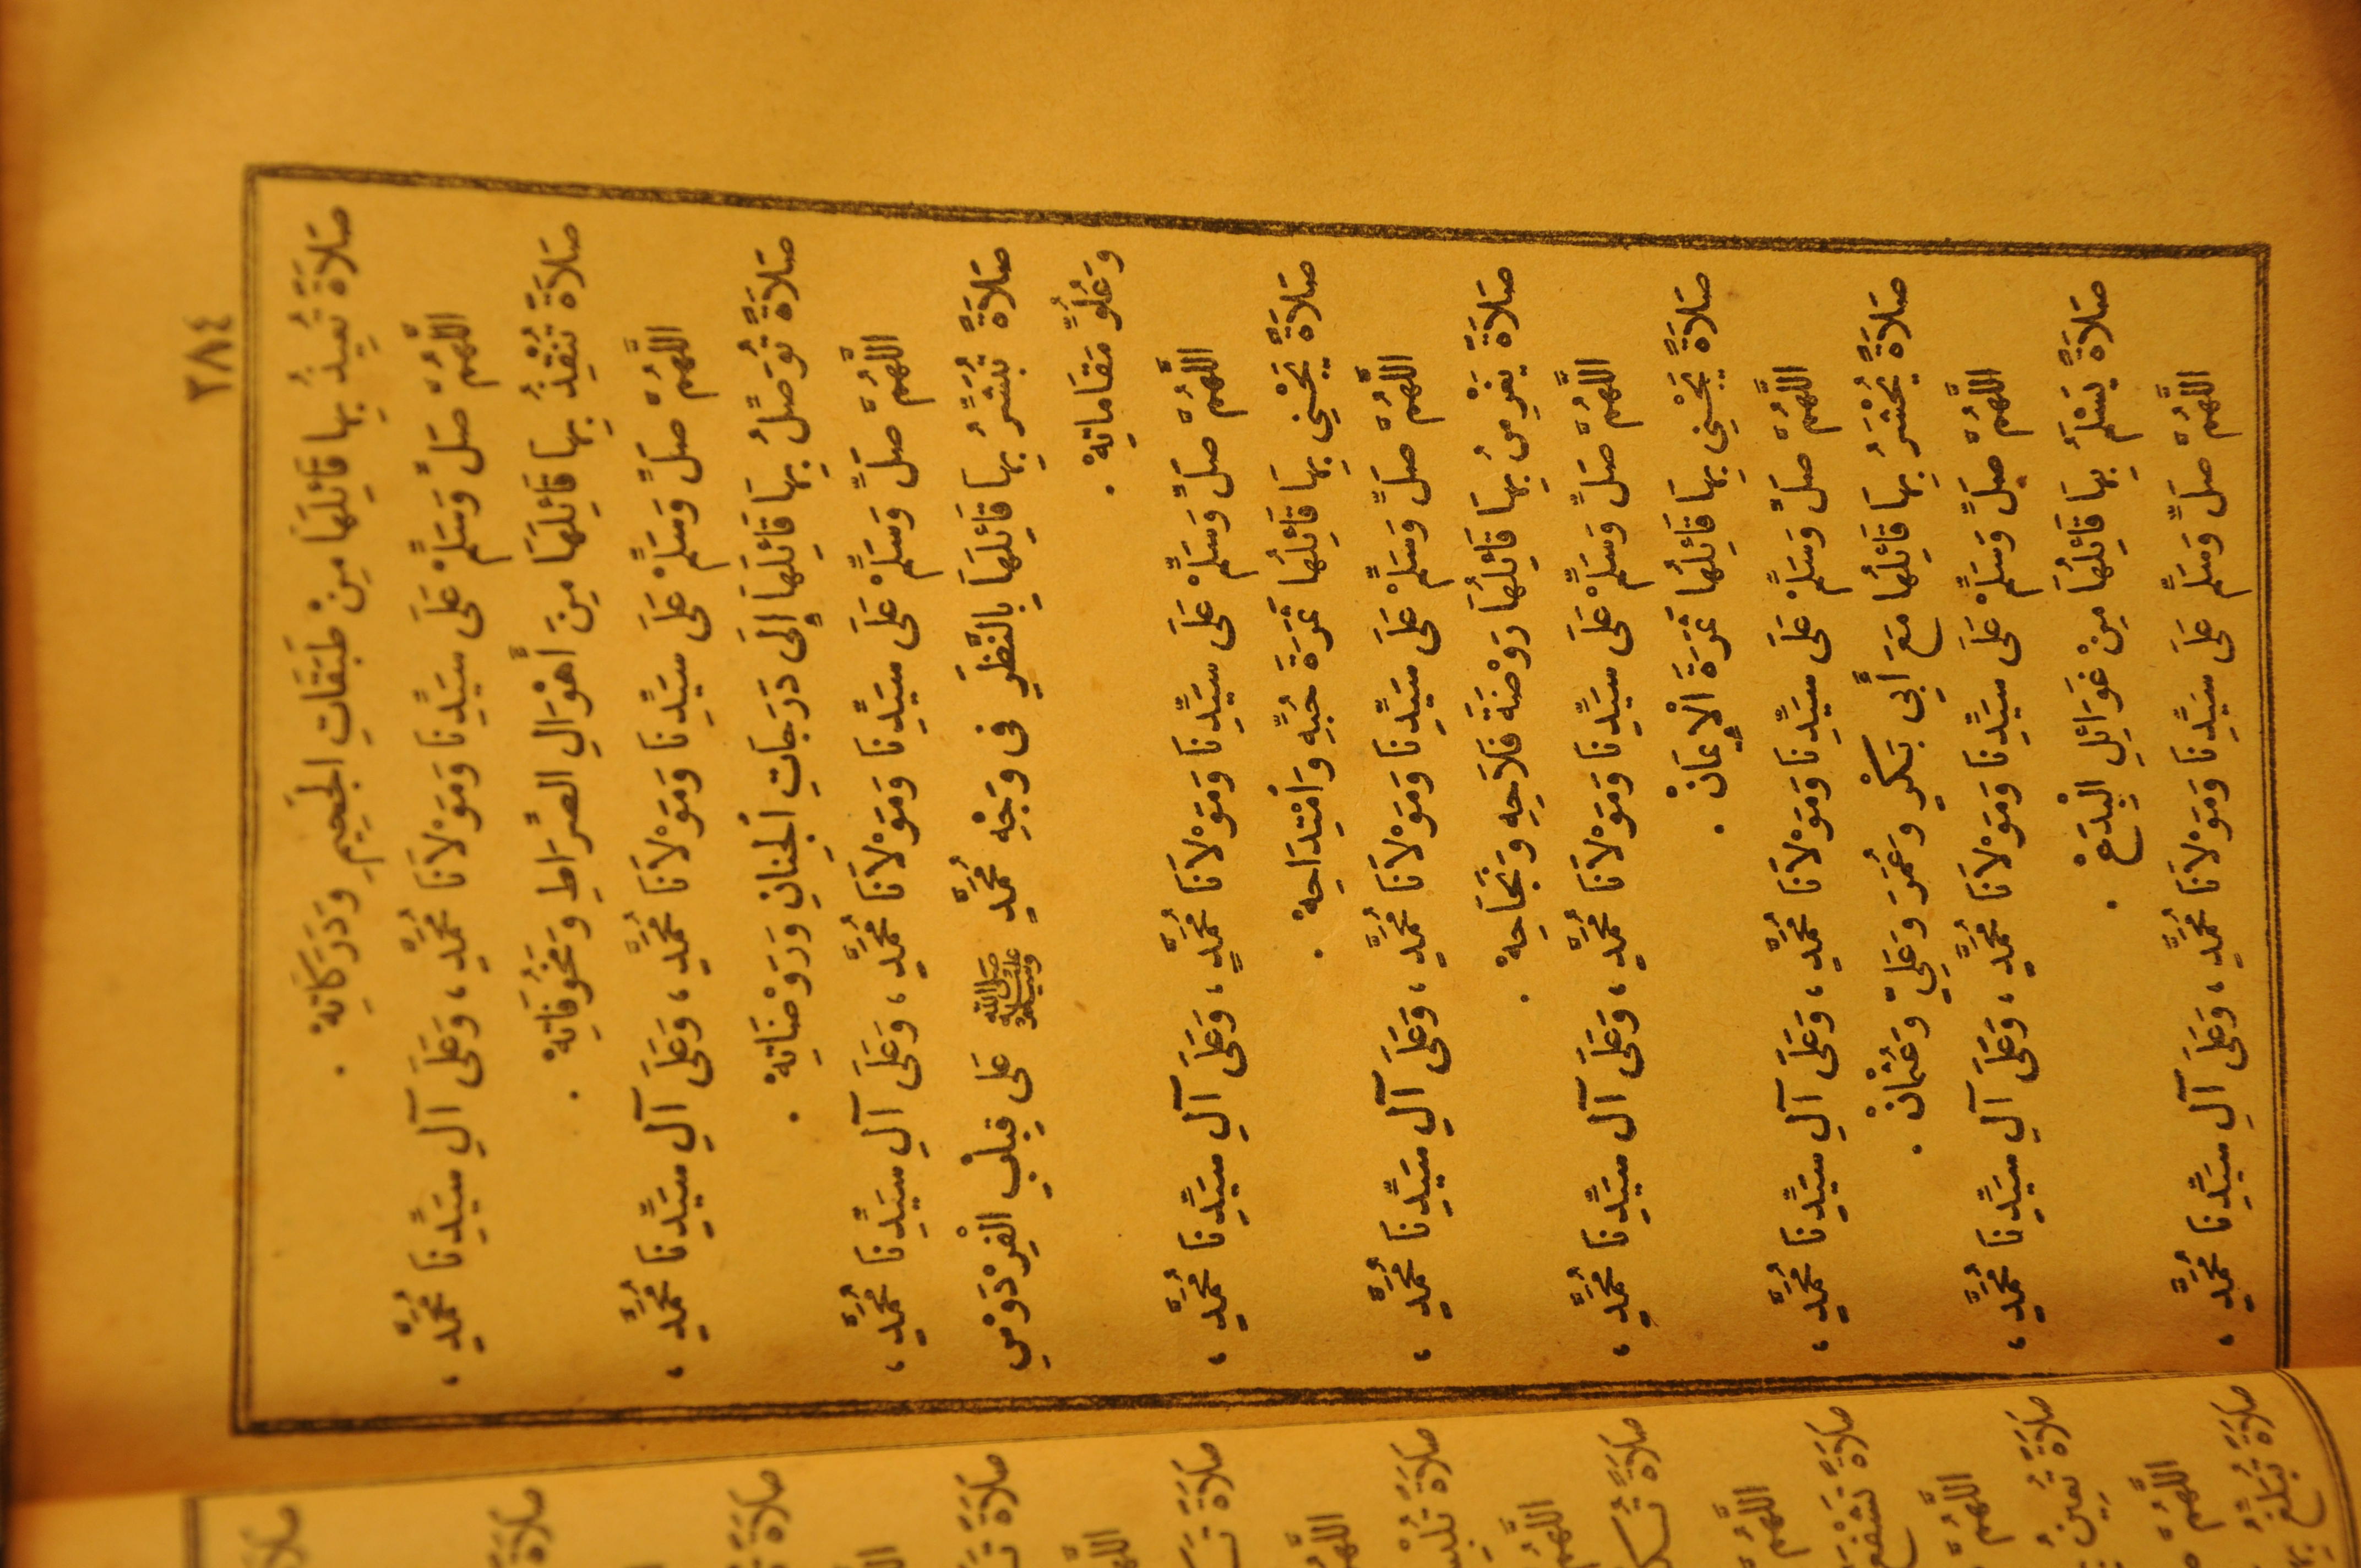 ٣٨٤
صَلَاةً تُعِيذُ بِهَا قَائِلَهَا مِنْ طَبَقَاتِ الْجَحِيمِ وَدَرَكَاتِهْ .
اللَّهُمَّ صَلِّ وَسَلِّمْ عَلَى سَيِّدِنَا وَمَوْلَانَا مُحَمَّدٍ ، وَعَلَى آلِ سَيِّدِنَا مُحَمَّدٍ ،
صَلَاةً تُنْقِذُ بِهَا قَائِلَهَا مِنَ أَهْوَالِ الصِّرَاطِ وَمَخُوفَاتِهْ .
اللَّهُمَّ صَلِّ وَسَلِّمْ عَلَى سَيِّدِنَا وَمَوْلَانَا مُحَمَّدٍ ، وَعَلَى آلِ سَيِّدِنَا مُحَمَّدٍ ،
صَلَاةً تُوَصِّلُ بِهَا قَائِلَهَا إِلَى دَرَجَاتِ الْجِنَانِ وَرَوْضَاتِهْ .
اللَّهُمَّ صَلِّ وَسَلِّمْ عَلَى سَيِّدِنَا وَمَوْلَانَا مُحَمَّدٍ ، وَعَلَى آلِ سَيِّدِنَا مُحَمَّدٍ ،
صَلَاةً تُبَشِّرُ بِهَا قَائِلَهَا بِالنَّظَرِ فِى وَجْهِ مُحَمَّدٍ صلى الله عليه وسلم عَلَى قِبَابِ الْفِرْدَوْسِ
وَعُلُوِّ مَقَامَاتِهْ .
اللَّهُمَّ صَلِّ وَسَلِّمْ عَلَى سَيِّدِنَا وَمَوْلَانَا مُحَمَّدٍ ، وَعَلَى آلِ سَيِّدِنَا مُحَمَّدٍ ،
صَلَاةً يَجْنِي بِهَا قَائِلُهَا ثَمَرَةَ حُبِّهِ وَامْتِدَاحِهْ .
اللَّهُمَّ صَلِّ وَسَلِّمْ عَلَى سَيِّدِنَا وَمَوْلَانَا مُحَمَّدٍ ، وَعَلَى آلِ سَيِّدِنَا مُحَمَّدٍ ،
صَلَاةً يَغْرِسُ بِهَا قَائِلُهَا رَوْضَةَ فَلَاحِهِ وَنَجَاحِهْ .
اللَّهُمَّ صَلِّ وَسَلِّمْ عَلَى سَيِّدِنَا وَمَوْلَانَا مُحَمَّدٍ ، وَعَلَى آلِ سَيِّدِنَا مُحَمَّدٍ ،
صَلَاةً يَجْنِي بِهَا قَائِلُهَا ثَمَرَةَ الْإِيمَانْ .
اللَّهُمَّ صَلِّ وَسَلِّمْ عَلَى سَيِّدِنَا وَمَوْلَانَا مُحَمَّدٍ ، وَعَلَى آلِ سَيِّدِنَا مُحَمَّدٍ ،
صَلَاةً يُحْشَرُ بِهَا قَائِلُهَا مَعَ أَبِي بَكْرٍ وَعُمَرَ وَعَلِيٍّ وَعُثْمَانْ .
اللَّهُمَّ صَلِّ وَسَلِّمْ عَلَى سَيِّدِنَا وَمَوْلَانَا مُحَمَّدٍ ، وَعَلَى آلِ سَيِّدِنَا مُحَمَّدٍ ،
صَلَاةً يَسْلَمُ بِهَا قَائِلُهَا مِنْ غَوَائِلِ الْبِدَعْ .
اللَّهُمَّ صَلِّ وَسَلِّمْ عَلَى سَيِّدِنَا وَمَوْلَانَا مُحَمَّدٍ ، وَعَلَى آلِ سَيِّدِنَا مُحَمَّدٍ ،